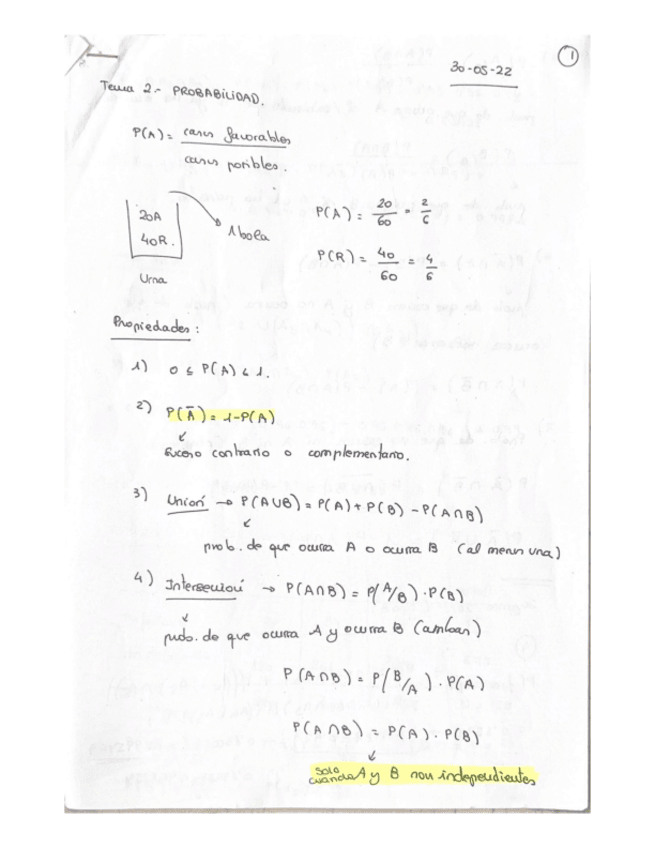 1
30-05-22
Tema 2.- PROBABILIDAD.
P(A) = casos favorables
casos posibles.
20A
40R.
1 bola
Urna
P(A) = 20/60 = 2/6
P(R) = 40/60 = 4/6
Propiedades:
1) 0 ≤ P(A) ≤ 1.
2) P(Ā) = 1-P(A)
↙
Suceso contrario o complementario.
3) Unión → P(A∪B) = P(A) + P(B) - P(A∩B)
↙
prob. de que ocurra A o ocurra B (al menos una)
4) Intersección → P(A∩B) = P(A/B) · P(B)
↓
prob. de que ocurra A y ocurra B (ambas)
P(A∩B) = P(B/A) · P(A)
P(A∩B) = P(A) · P(B)
↓
solo cuando A y B son independientes